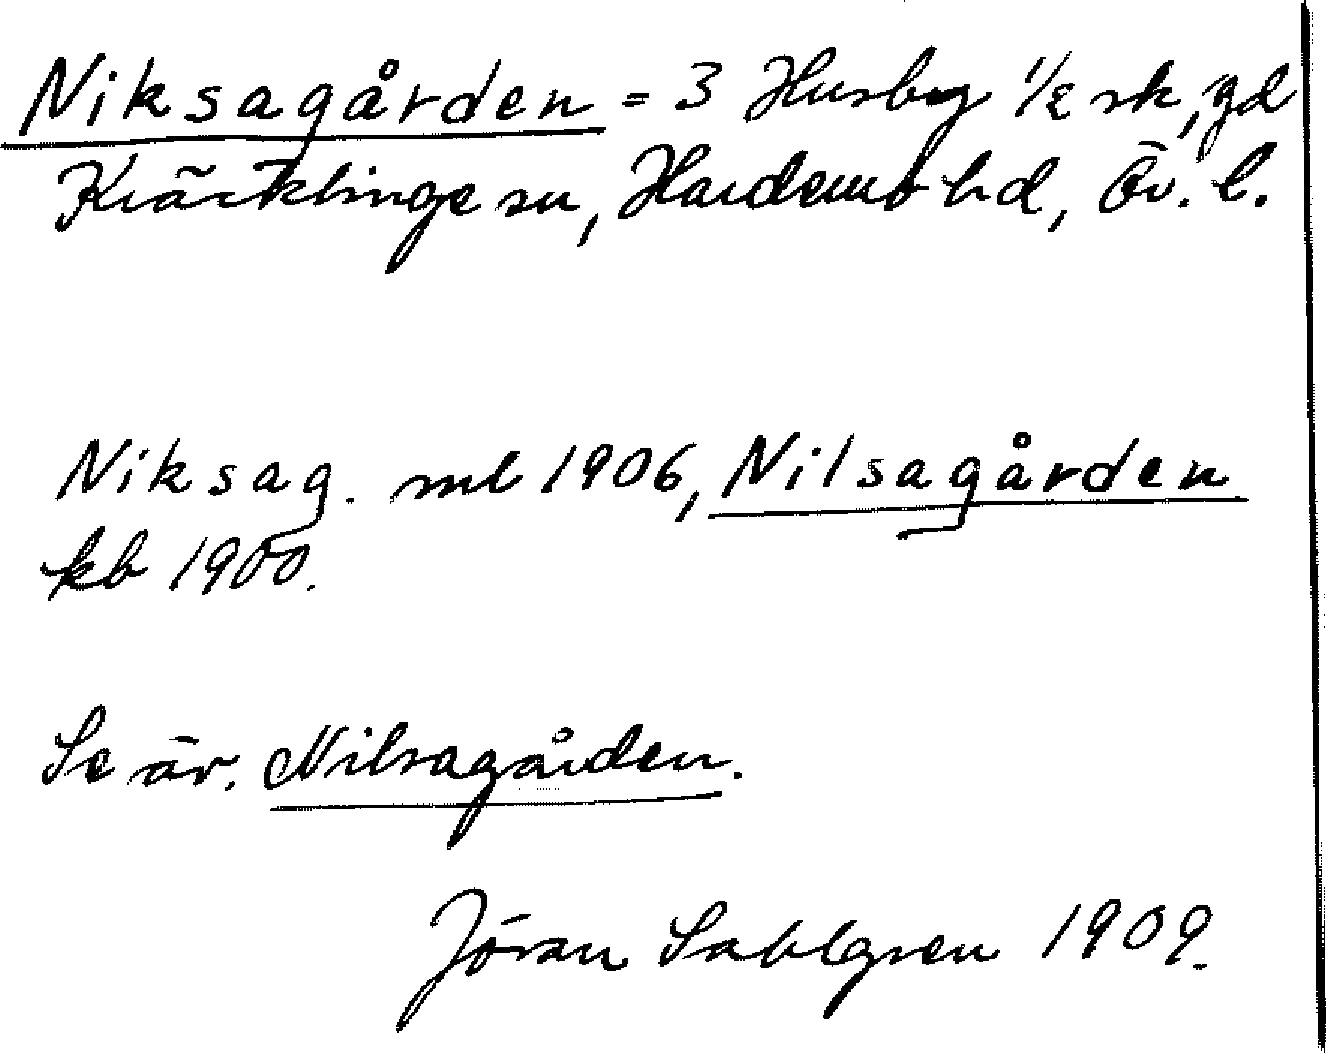 Niksagården = 3 Husby 1/2 sk, gd
Kräcklinge sn, Hardemo hd, Ör. l.
Niksag. ml 1906, Nilsagården
kb 1900.
Se äv. Nilsagården.
Jöran Sahlgren 1909.